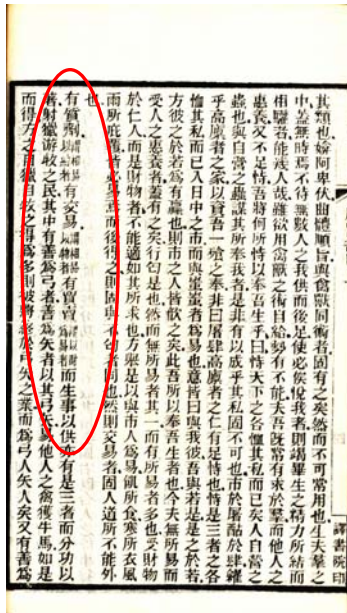 其類也媚阿卑伏曲體順旨與禽獸同術者固有之矣然而不可常用也生夫羣之
中蓋無時焉不待無數人之我供而後足使必俟悅我者則竭畢生之精力所結而
相驩者能幾人哉雖欲用禽獸之術自給勢有不能夫吾旣常有求於羣而他人之
惠養又不足恃吾將何所恃以奉吾生乎曰恃天下之各恤其私而已矣人自營之
蟲也與自營之蟲謀其所奉我者是非有以成乎其私固不可也市於屠酤於肆糴
乎高廩者之家以資吾一飧之奉非曰屠肆高廩者之仁有足恃也恃是三者之各
恤其私而已入日中之市而與蚩蚩者爲易也意皆曰與我彼吾與若是是之於若
方彼之於若爲有贏也則市之人皆歆之矣此吾所以奉吾生者也今夫無所易而
受人之惠養者蓋有之矣行匄是也然而無所易者其一而有所易者多也受財物
於仁人而是財物者不能適如其所求也方舉是以與市人爲易飢所食寒所衣風
雨所庇覆皆必易焉而後得之則固與不匄者同也然則交易者固人道所不能外
也
有質劑有交易有買賣而生事以供有是三者而分功以
善射獵游牧之民其中有善爲弓者善爲矢者以其弓矢易他人之禽獲牛馬如是
而得方之自獵自牧之得爲多則彼將終於弓矢之業而爲弓人矢人矣又有善爲
譯書院印